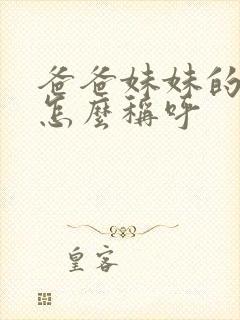 爸爸妹妹的
怎麼稱呼
皇客